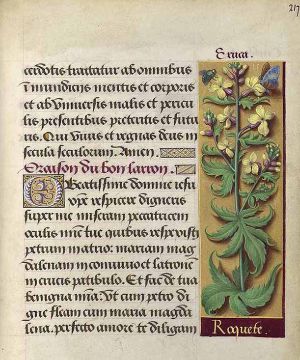 217
Eruca.
cerdotis tractatur ab omnibus
inmundiciis mentis et corporis
et ab vniuersis malis et pericu
lis presentibus preteritis et futu
ris. Qui viuis et regnas deus in
secula seculorum. Amen.
Oraison du bon larron.
Beatissime domine iesu
respicere digneris
super me miseram peccatricem
oculis misericordie tue quibus respexisti
petrum in atrio: mariam mag
dalenam in conuiuio et latronem
in crucis patibulo. Et fac de tua
benigna Vt cum petro di
gne fleam cum maria magda
lena. perfecto amore te diligam
Roquete.